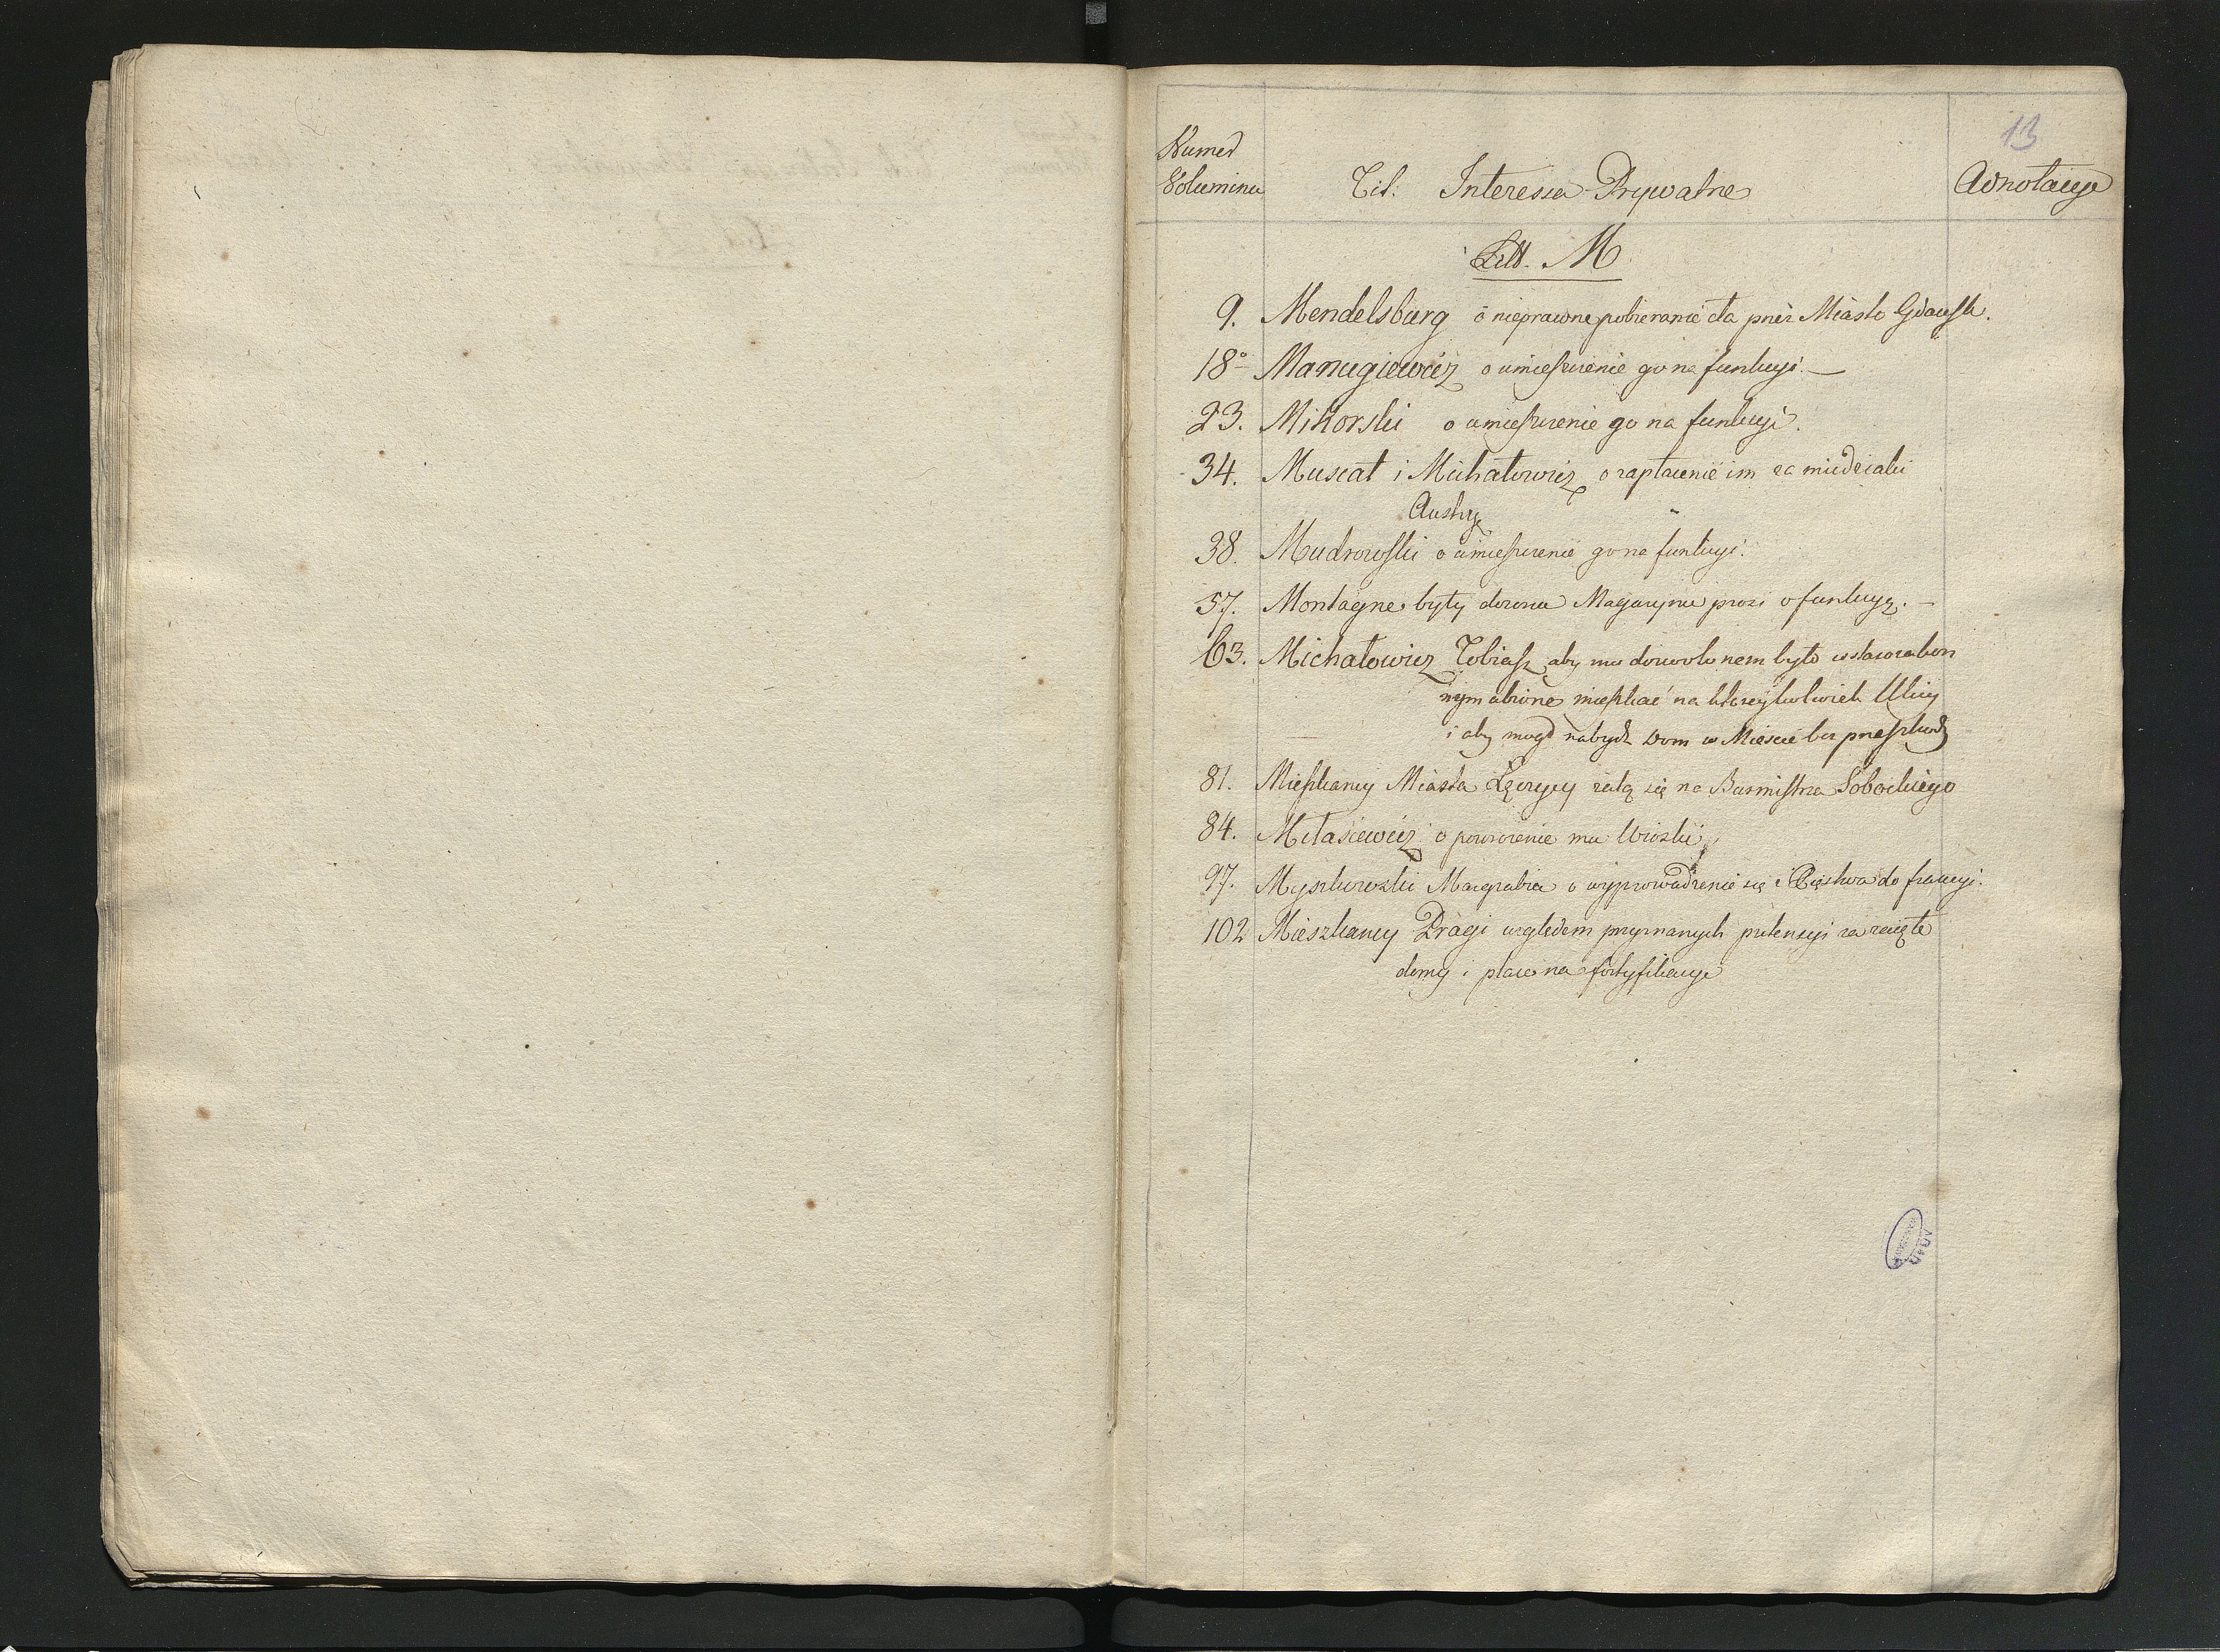 13
Numer
Volumina Tit: Interessa Prywatne Adnotacye
Litt. M
9. Mendelsburg o nieprawne pobieranie cła przez Miasto Gdańsk.
18 Manugiewicz o umieszczenie go na funkcyi. —
23. Mikorski o umieszczenie go na funkcyi.
34. Muscat i Michałowicz o zapłacenie im za miedziaki
Austry
38. Mudrowski o umieszczenie go na funkcyi.
57. Montagne były dozorca Magazynu prosi o funkcyą. —
63. Michałowicz Tobiasz aby mu dozwolonem było w starozakon
nym ubiorze mieszkać na którejkolwiek Ulicy
i aby mógł nabydź Dom w Mieście bez przeszkody
81. Mieszkańcy Miasta Łęczycy żalą się na Burmistrza Sobockiego
84. Miłasiewicz o powrócenie mu Wioski
97. Myszkowski Margrabia o wyprowadzenie się z Xięstwa do francyi.
102 Mieszkańcy Pragi względem przyznanych pretensyi za zajęte
domy i place na fortyfikacye
AGAD